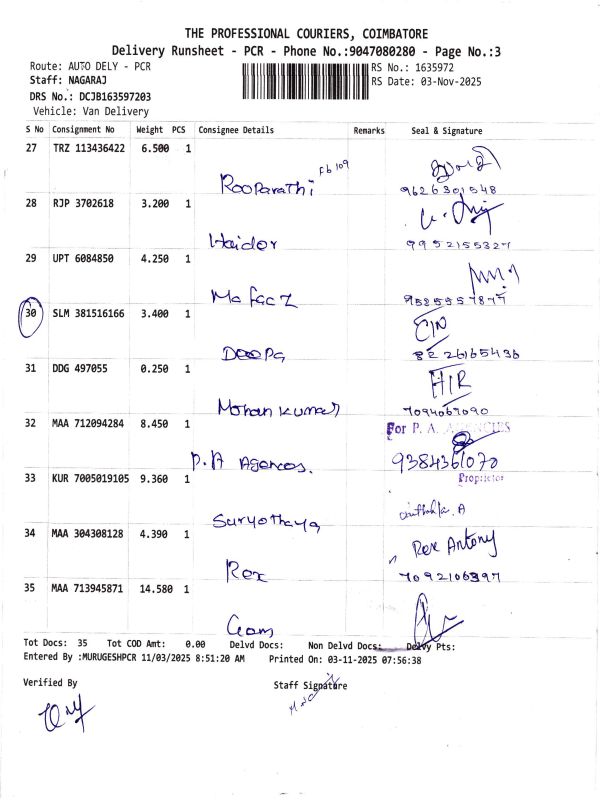 THE PROFESSIONAL COURIERS, COIMBATORE
Delivery Runsheet - PCR - Phone No.:9047080280 - Page No.:3
Route: AUTO DELY - PCR
RS No.: 1635972
Staff: NAGARAJ
RS Date: 03-Nov-2025
DRS No.: DCJB163597203
Vehicle: Van Delivery
S No Consignment No Weight PCS Consignee Details Remarks Seal & Signature
27 TRZ 113436422 6.500 1
Rooparathi
9626301548
28 RJP 3702618 3.200 1
Haider
9952155327
29 UPT 6084850 4.250 1
Mafaz
30 SLM 381516166 3.400 1
Deepa
31 DDG 497055 0.250 1
HIR
Mohan kumar
7094067090
32 MAA 712094284 8.450 1
For P. A. AGENCIES
P.A Agences.
9384361070
Proprietor
33 KUR 7005019105 9.360 1
Suryothaya
34 MAA 304308128 4.390 1
Rex Antony
Rex
7092106397
35 MAA 713945871 14.580 1
Tot Docs: 35 Tot COD Amt: 0.00 Delvd Docs: Non Delvd Docs: Delvy Pts:
Entered By :MURUGESHPCR 11/03/2025 8:51:20 AM Printed On: 03-11-2025 07:56:38
Verified By
Staff Signature